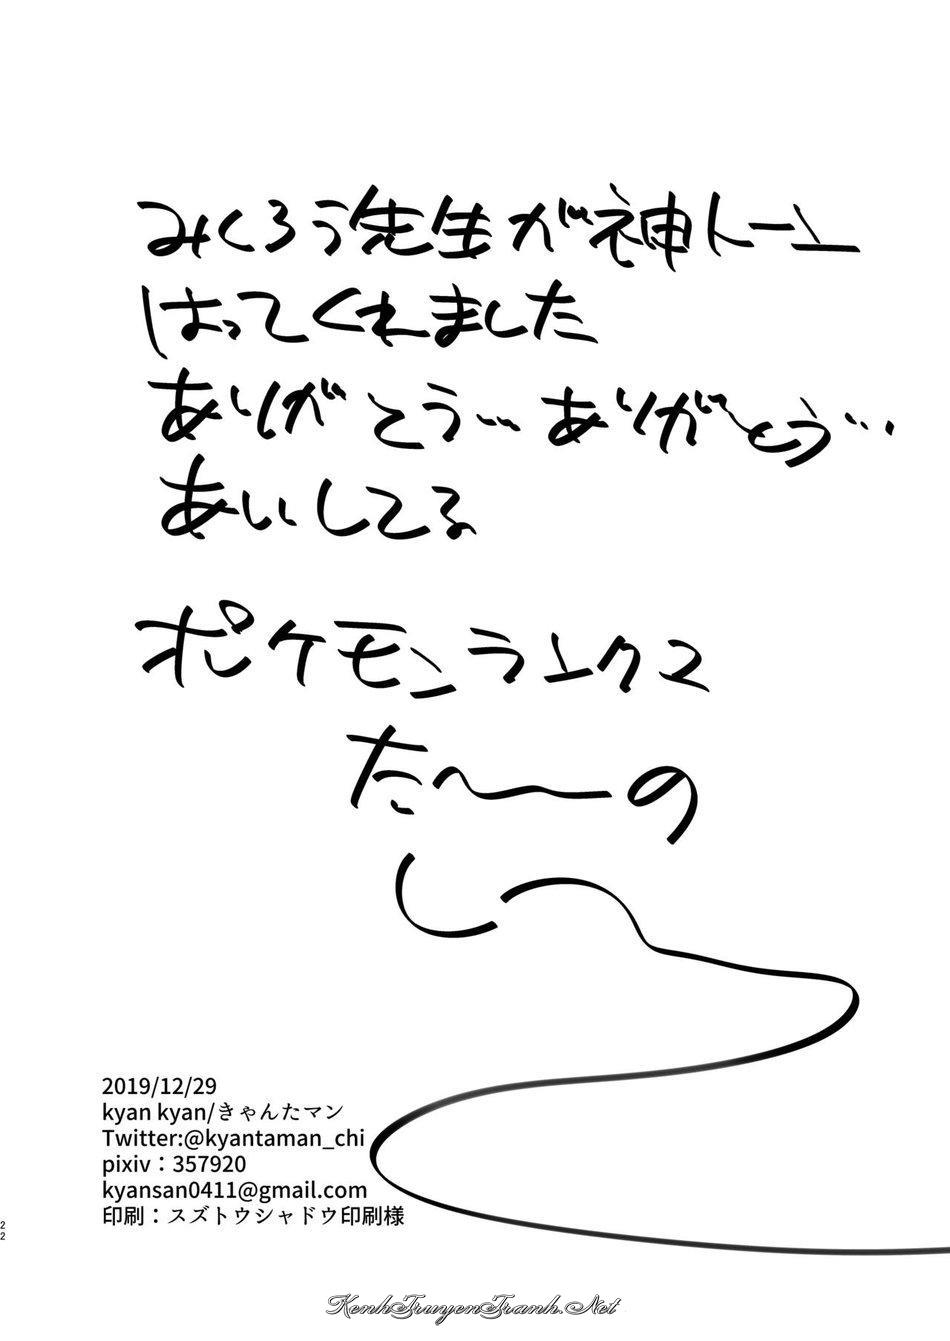 みくろう先生が神トーン
はってくれました
ありがとう… ありがとう…
あいしてる
ポケモンランクマ
た〜の
し〜
2019/12/29
kyan kyan/きゃんたマン
Twitter:@kyantaman_chi
pixiv：357920
kyansan0411@gmail.com
印刷：スズトウシャドウ印刷様
22
KenhTruyenTranh.Net